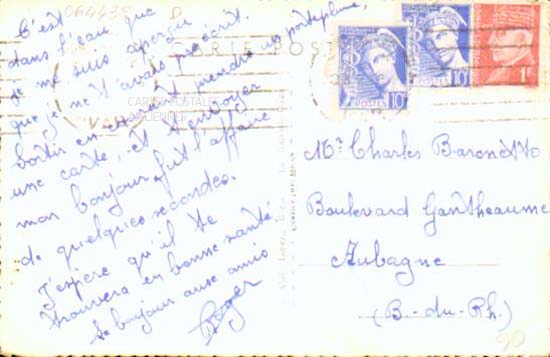 064438 D
C'est
dans l'eau que
je me suis aperçu
que je ne t'avais pas écrit.
Sortir en et prendre un porteplume,
une carte, et t'envoyer
mon bonjour fut l'affaire
de quelques secondes.
J'espère qu'il te
trouvera en bonne santé
le bonjour aux amis
Roger
CARTE POSTALE
CARTES POSTALES
ANCIENNES
POSTES
10c
POSTES
10c
1F
Mr Charles Baronetto
Boulevard Gantheaume
Aubagne
(B.-du-Rh.)
90